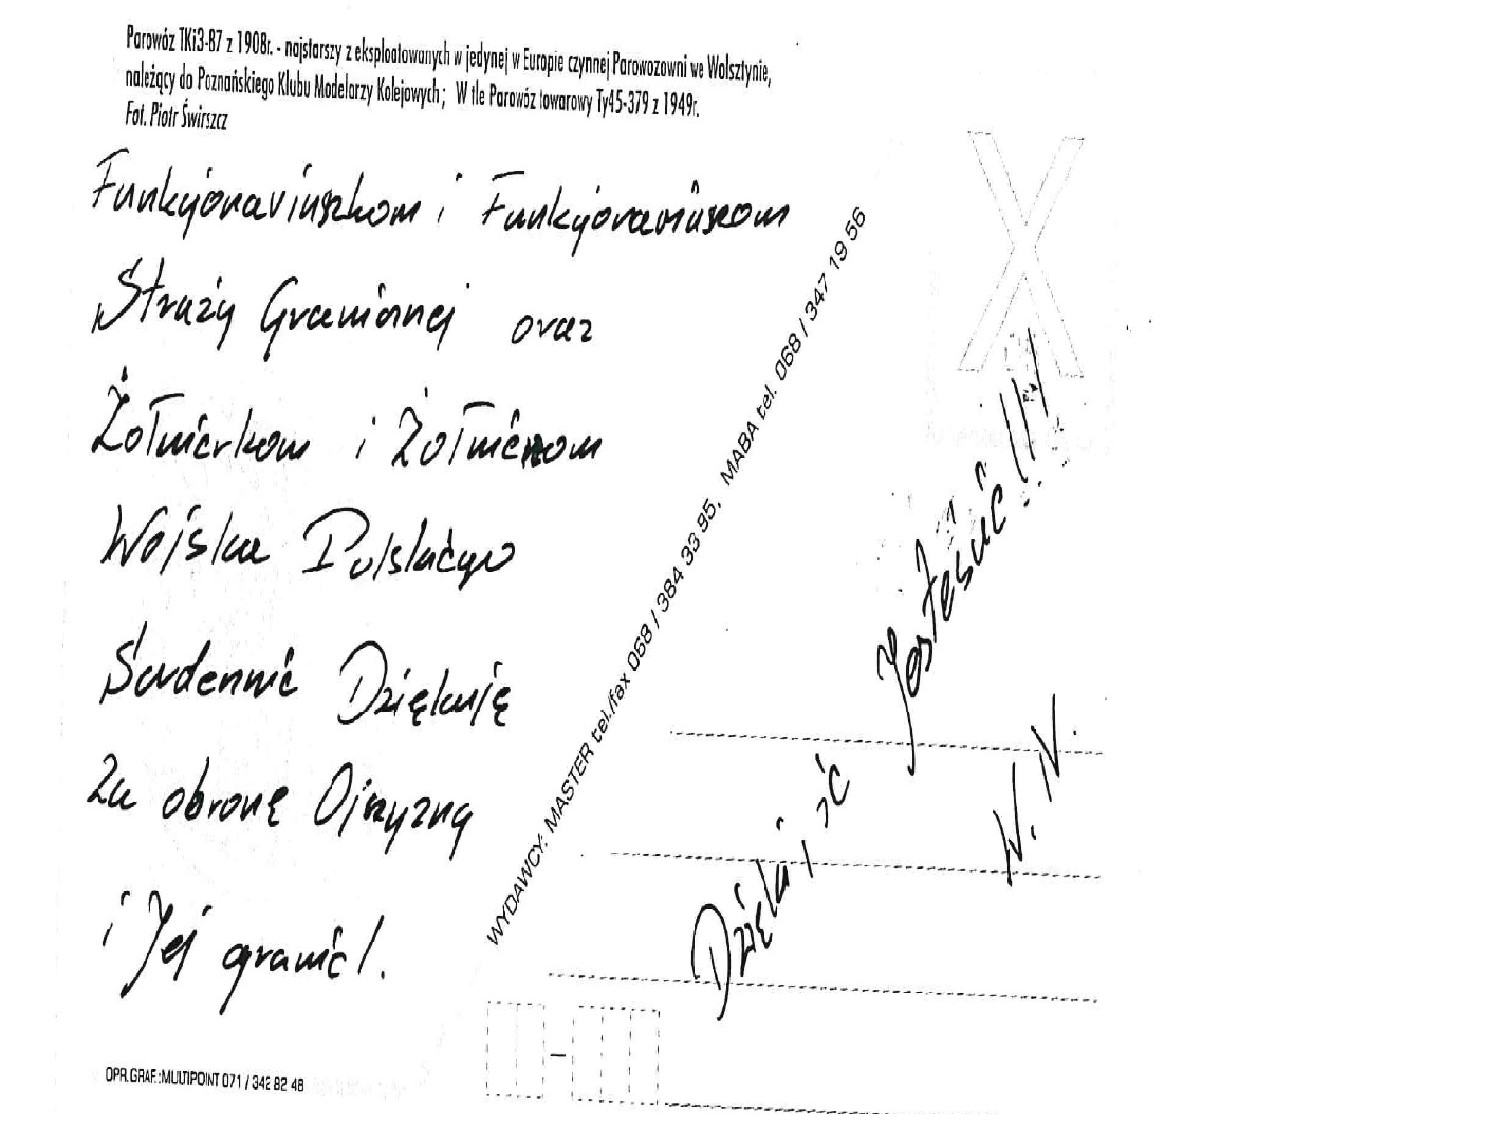 Parowóz TKi3-87 z 1908r. - najstarszy z eksploatowanych w jedynej w Europie czynnej Parowozowni we Wolsztynie,
należący do Poznańskiego Klubu Modelarzy Kolejowych; W tle Parowóz towarowy Ty45-379 z 1949r.
Fot. Piotr Świrszcz
Funkcjonariuszkom i Funkcjonariuszom
Straży Granicznej oraz
Żołnierkom i Żołnierzom
Wojska Polskiego
Serdecznie Dziękuję
Za obronę Ojczyzny
i Jej granic!.
WYDAWCY: MASTER tel./fax 068 / 384 33 95, MABA tel. 068 / 347 19 56
Dzięki że Jesteście !!!
N. N.
OPR.GRAF.:MULTIPOINT 071 / 342 82 48